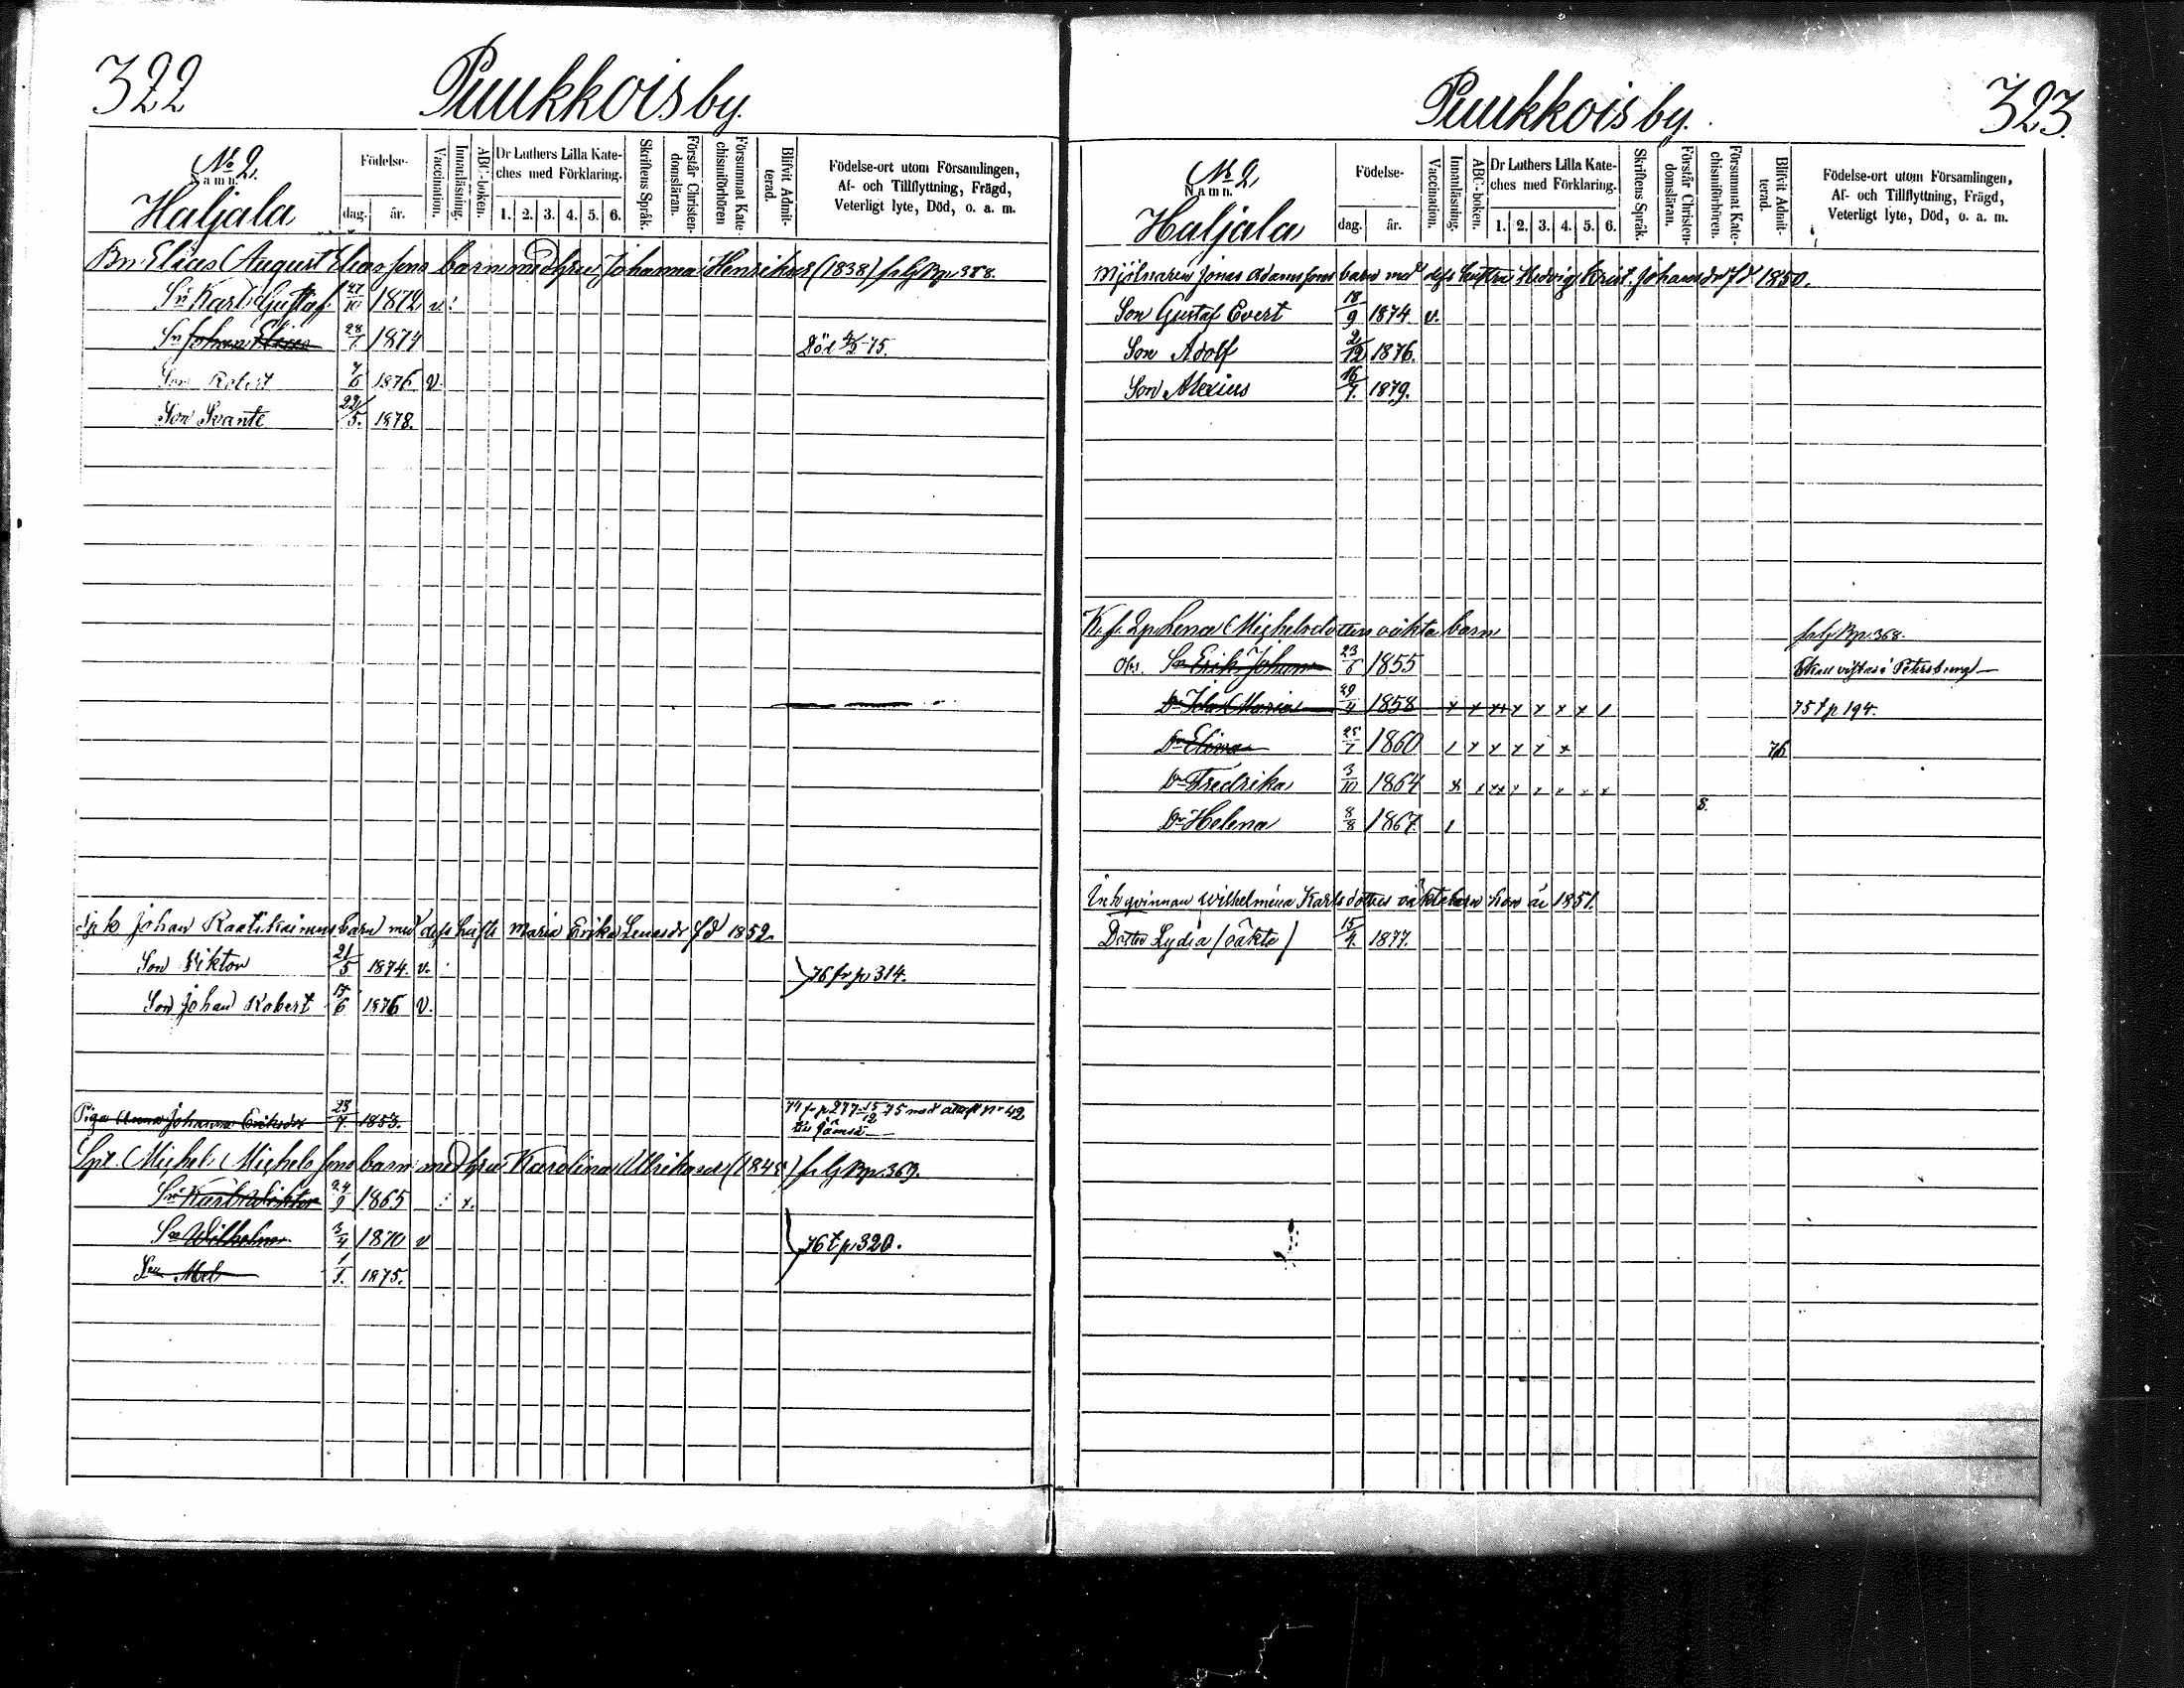 322
Puukkois by.
No 2.
Namn.
Haljala
Födelse-
dag. år.
Vaccination.
Innanläsning.
ABC-boken.
Dr Luthers Lilla Kate-
ches med Förklaring.
1. 2. 3. 4. 5. 6.
Skriftens Språk.
Förstår Christen-
domsläran.
Försummat Kate-
chismiförhören
Blifvit Admit-
terad.
Födelse-ort utom Församlingen,
Af- och Tillflyttning, Frägd,
Veterligt lyte, Död, o. a. m.
Bn. Elias August Eliassons barn med hru Johanna Henriksdr (1838)
Sn Karl Gustaf 27/10 1872 v.
Sn Johan Elias 28/7 1874 Död -75.
Son Robert 7/6 1876 v.
Son Svante 22/5. 1878.
Johan Raatikainens barn med dess hustr Maria Erika Lenasdr fd 1852.
Son Viktor 21/5 1874. v. 76 fr p 314.
Son Johan Robert 17/6 1876 v.
Piga Anna Johanna Eriksdr 23/7. 1853. fr p 277 15/12 75 med attest No 42
till Jämsä
Michel Michelssons barn med hru Karolina Ulrikasdr
Sn Karl Viktor 24/9 1865 x.
Sn Wilhelm 3/4 1870 v 76 t p 320.
Son Abel 1/1. 1875.
Puukkois by.
323.
No 2,
Namn.
Haljala
Födelse-
dag. år.
Vaccination.
Innanläsning.
ABC-boken.
Dr Luthers Lilla Kate-
ches med Förklaring.
1. 2. 3. 4. 5. 6.
Skriftens Språk.
Förstår Christen-
domsläran.
Försummat Kate-
chismiförhören.
Blifvit Admit-
terad.
Födelse-ort utom Församlingen,
Af- och Tillflyttning, Frägd,
Veterligt lyte, Död, o. a. m.
Mjölnaren Jonas Adamssons barn med dess hustru Hedvig Krist. Johansdr fd 1850.
Son Gustaf Evert 18/9 1874 v.
Son Adolf 2/12 1876.
Son Alexius 16/7. 1879.
Lena Michelsdotters oäkta barn
Obs. Sn Erik Johan 23/6 1855 Skall vistas i Petersburg
Dr Ida Maria 29/4 1858 x x xx x x x x 1 75 t p 194.
Dr Elina 25/7 1860 1 x x x x x 76
Dr Fredrika 3/10 1864 x x xx x x x x x 8.
Dr Helena 8/8 1867 1
Inh qvinnan Wilhelmina Karlsdotters oäkta barn hon är 1851.
Dotter Lydia (oäkta) 15/4. 1877.